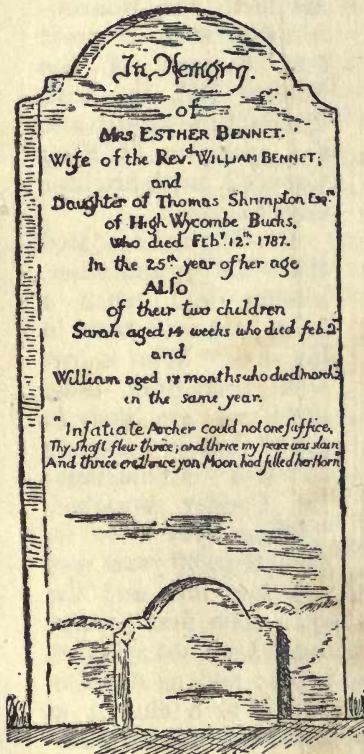 In Memory.
of
MRS ESTHER BENNET.
Wife of the Revd. WILLIAM BENNET;
and
Daughter of Thomas Shrimpton Esqre.
of High Wycombe Bucks,
Who died Feby. 12th. 1787.
In the 25th year of her age
ALSO
of their two children
Sarah aged 14 weeks who died feb. 2
and
William aged 18 months who died march
in the same year.
"Insatiate Archer could not one suffice,
Thy shaft flew thrice; and thrice my peace was slain
And thrice ere thrice yon Moon had filled her Horn"